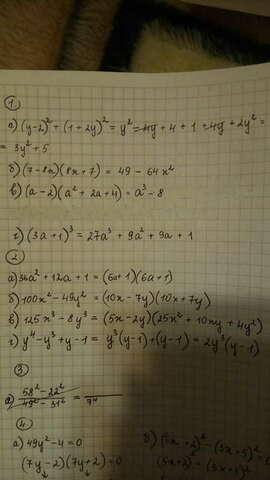 1
а) (y-2)² + (1+2y)² = y² - 4y + 4 + 1 + 4y + 2y² =
= 3y² + 5
б) (7-8x)(8x+7) = 49 - 64x²
в) (a-2)(a²+2a+4) = a³ - 8
г) (3a+1)³ = 27a³ + 9a² + 9a + 1
2
а) 36a² + 12a + 1 = (6a+1)(6a+1)
б) 100x² - 49y² = (10x-7y)(10x+7y)
в) 125x³ - 8y³ = (5x-2y)(25x² + 10xy + 4y²)
г) y⁴ - y³ + y - 1 = y³(y-1) + (y-1) = 2y³(y-1)
3
а) 58² - 22² / 49² - 31² =
4
а) 49y² - 4 = 0
(7y-2)(7y+2) = 0